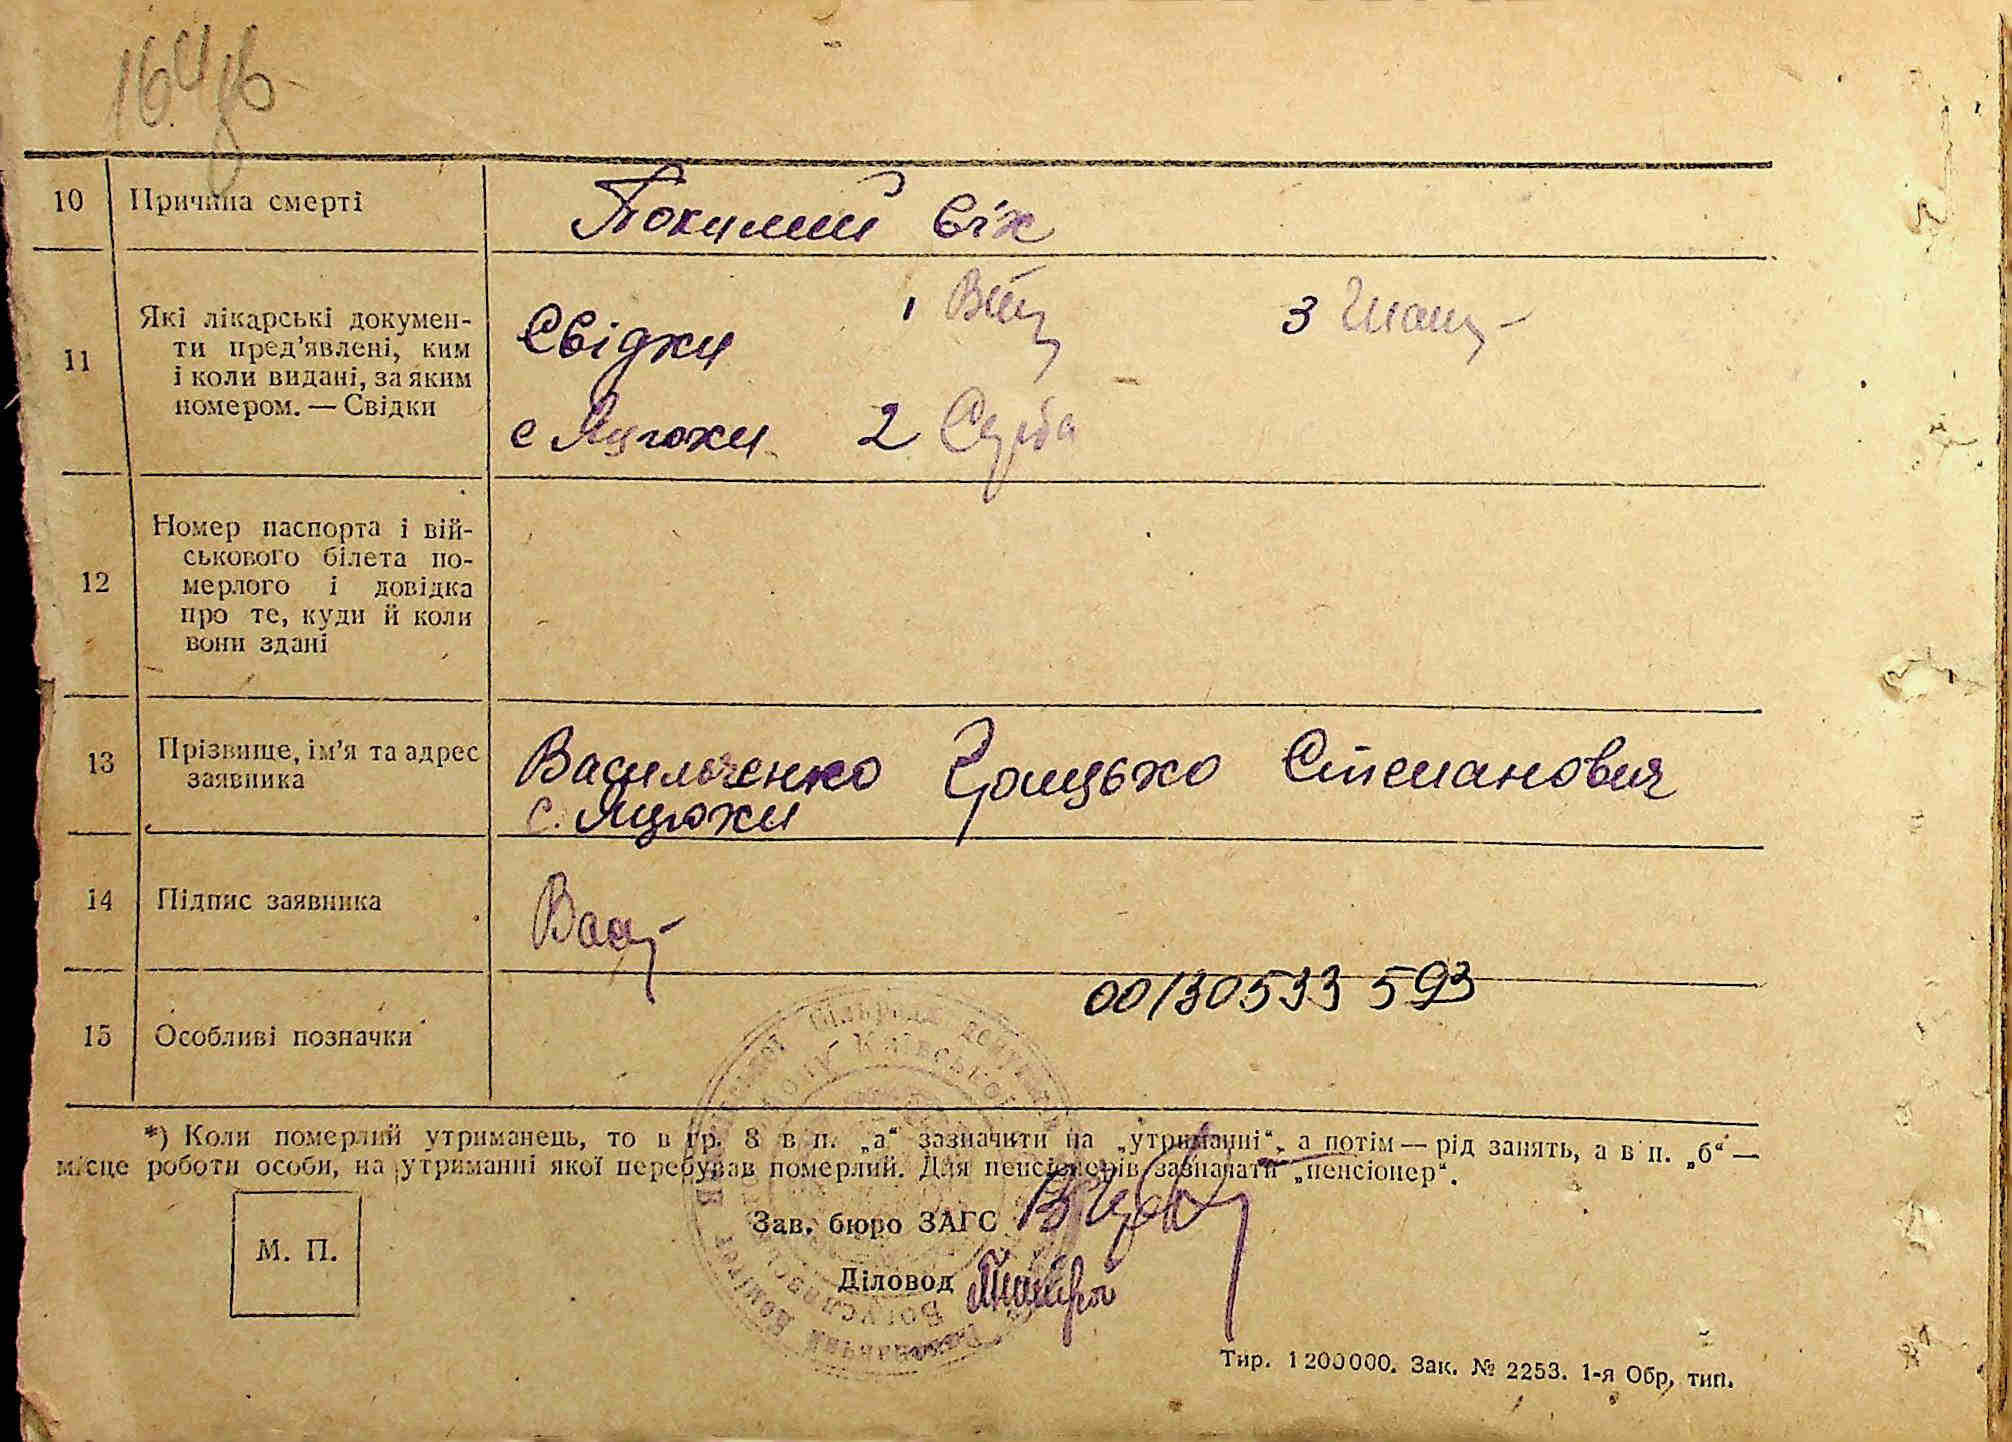 10 Причина смерті Похилий вік
11 Які лікарські докумен-
ти пред'явлені, ким
і коли видані, за яким
номером. — Свідки
Свідки 1 3
с Яцюки 2
12 Номер паспорта і вій-
ськового білета по-
мерлого і довідка
про те, куди й коли
вони здані
13 Прізвище, ім'я та адрес
заявника
Васильченко Грицько Степанович
с. Яцюки
14 Підпис заявника
00130533 593
15 Особливі позначки
*) Коли померлий утриманець, то в гр. 8 в п. „а“ зазначити на „утриманні“, а потім — рід занять, а в п. „б“ —
місце роботи особи, на утриманні якої перебував померлий. Для пенсіонерів зазначати „пенсіонер“.
М. П.
Зав. бюро ЗАГС
Діловод
Тир. 1200000. Зак. № 2253. 1-я Обр. тип.